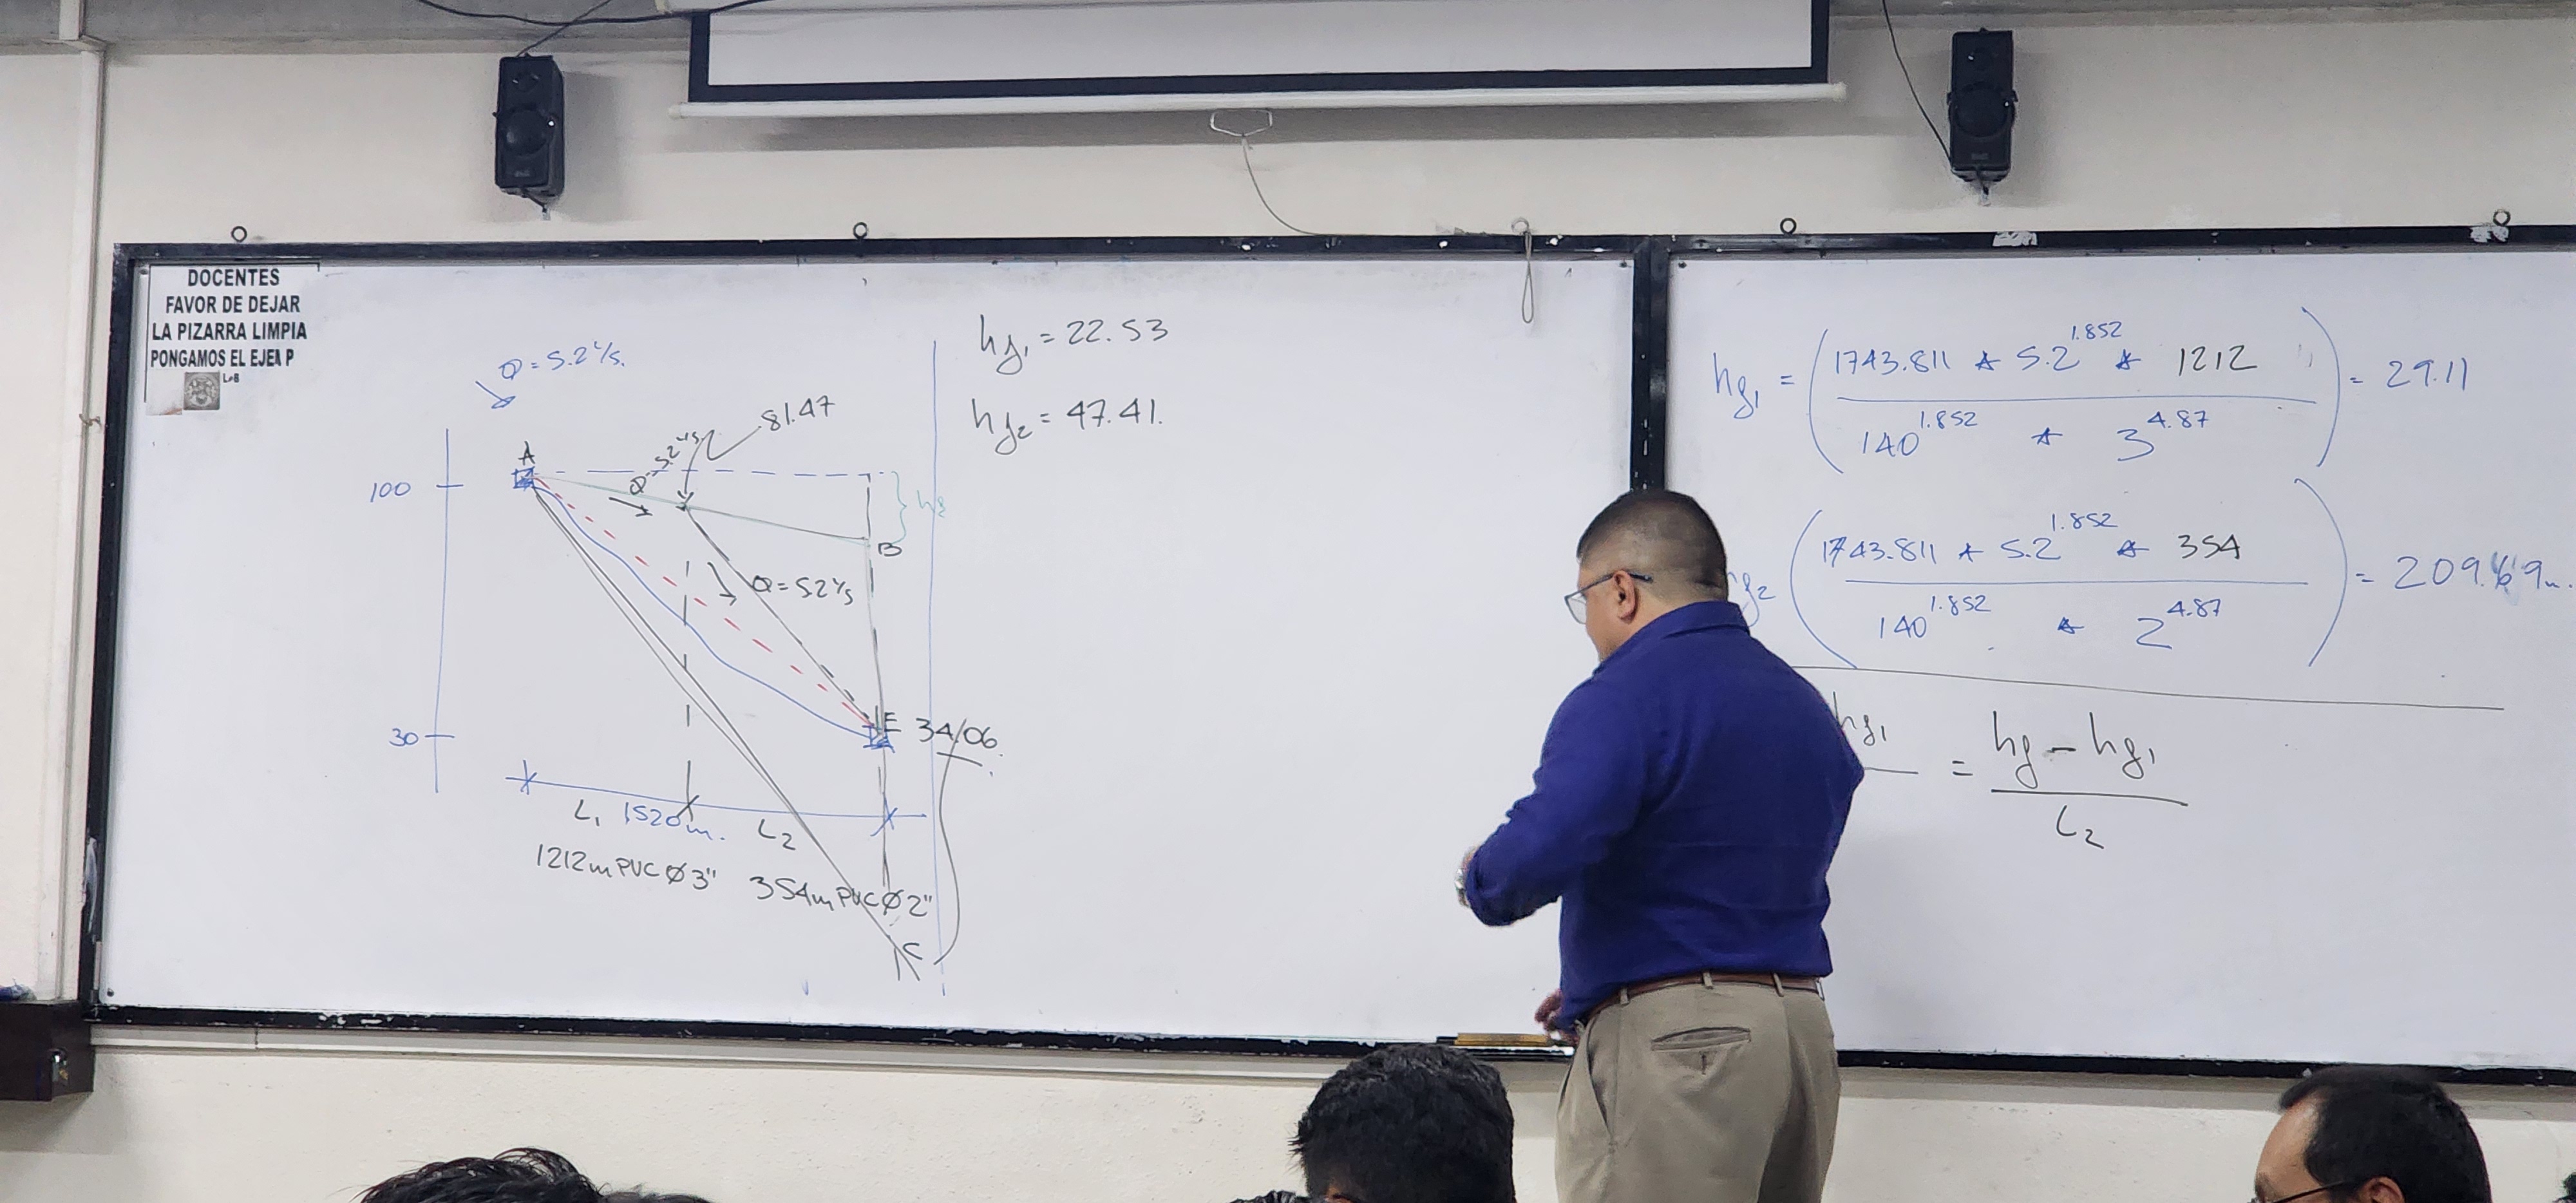 DOCENTES
FAVOR DE DEJAR
LA PIZARRA LIMPIA
PONGAMOS EL EJE P
Q = 5.2 l/s.
A
100
Q = 5.2 l/s
81.47
B
Q = 5.2 l/s
E 34/06
30
L1 1520m. L2
1212m PVC Ø 3" 354m PVC Ø 2"
C
hf1 = 22.53
hf2 = 47.41.
hf1 = (1743.811 * 5.2^1.852 * 1212 / 140^1.852 * 3^4.87) = 29.11
hf2 (1743.811 * 5.2^1.852 * 354 / 140^1.852 * 2^4.87) = 209.69m.
hf1 = hf - hf1
L2